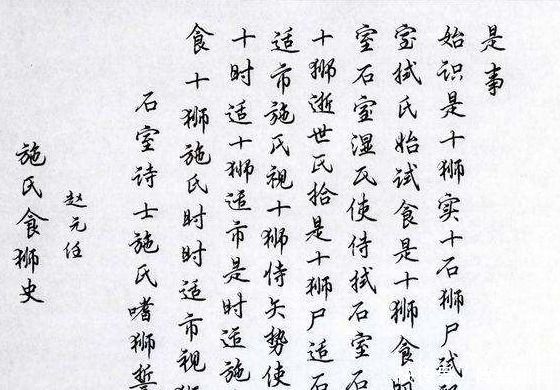 施氏食狮史
赵元任
石室诗士施氏嗜狮誓
食十狮施氏时时适市视狮
十时适十狮适市是时适施
适市施氏视十狮恃矢势使
十狮逝世氏拾是十狮尸适石
室石室湿氏使侍拭石室石
室拭氏始试食是十狮食时
始识是十狮实十石狮尸试释
是事